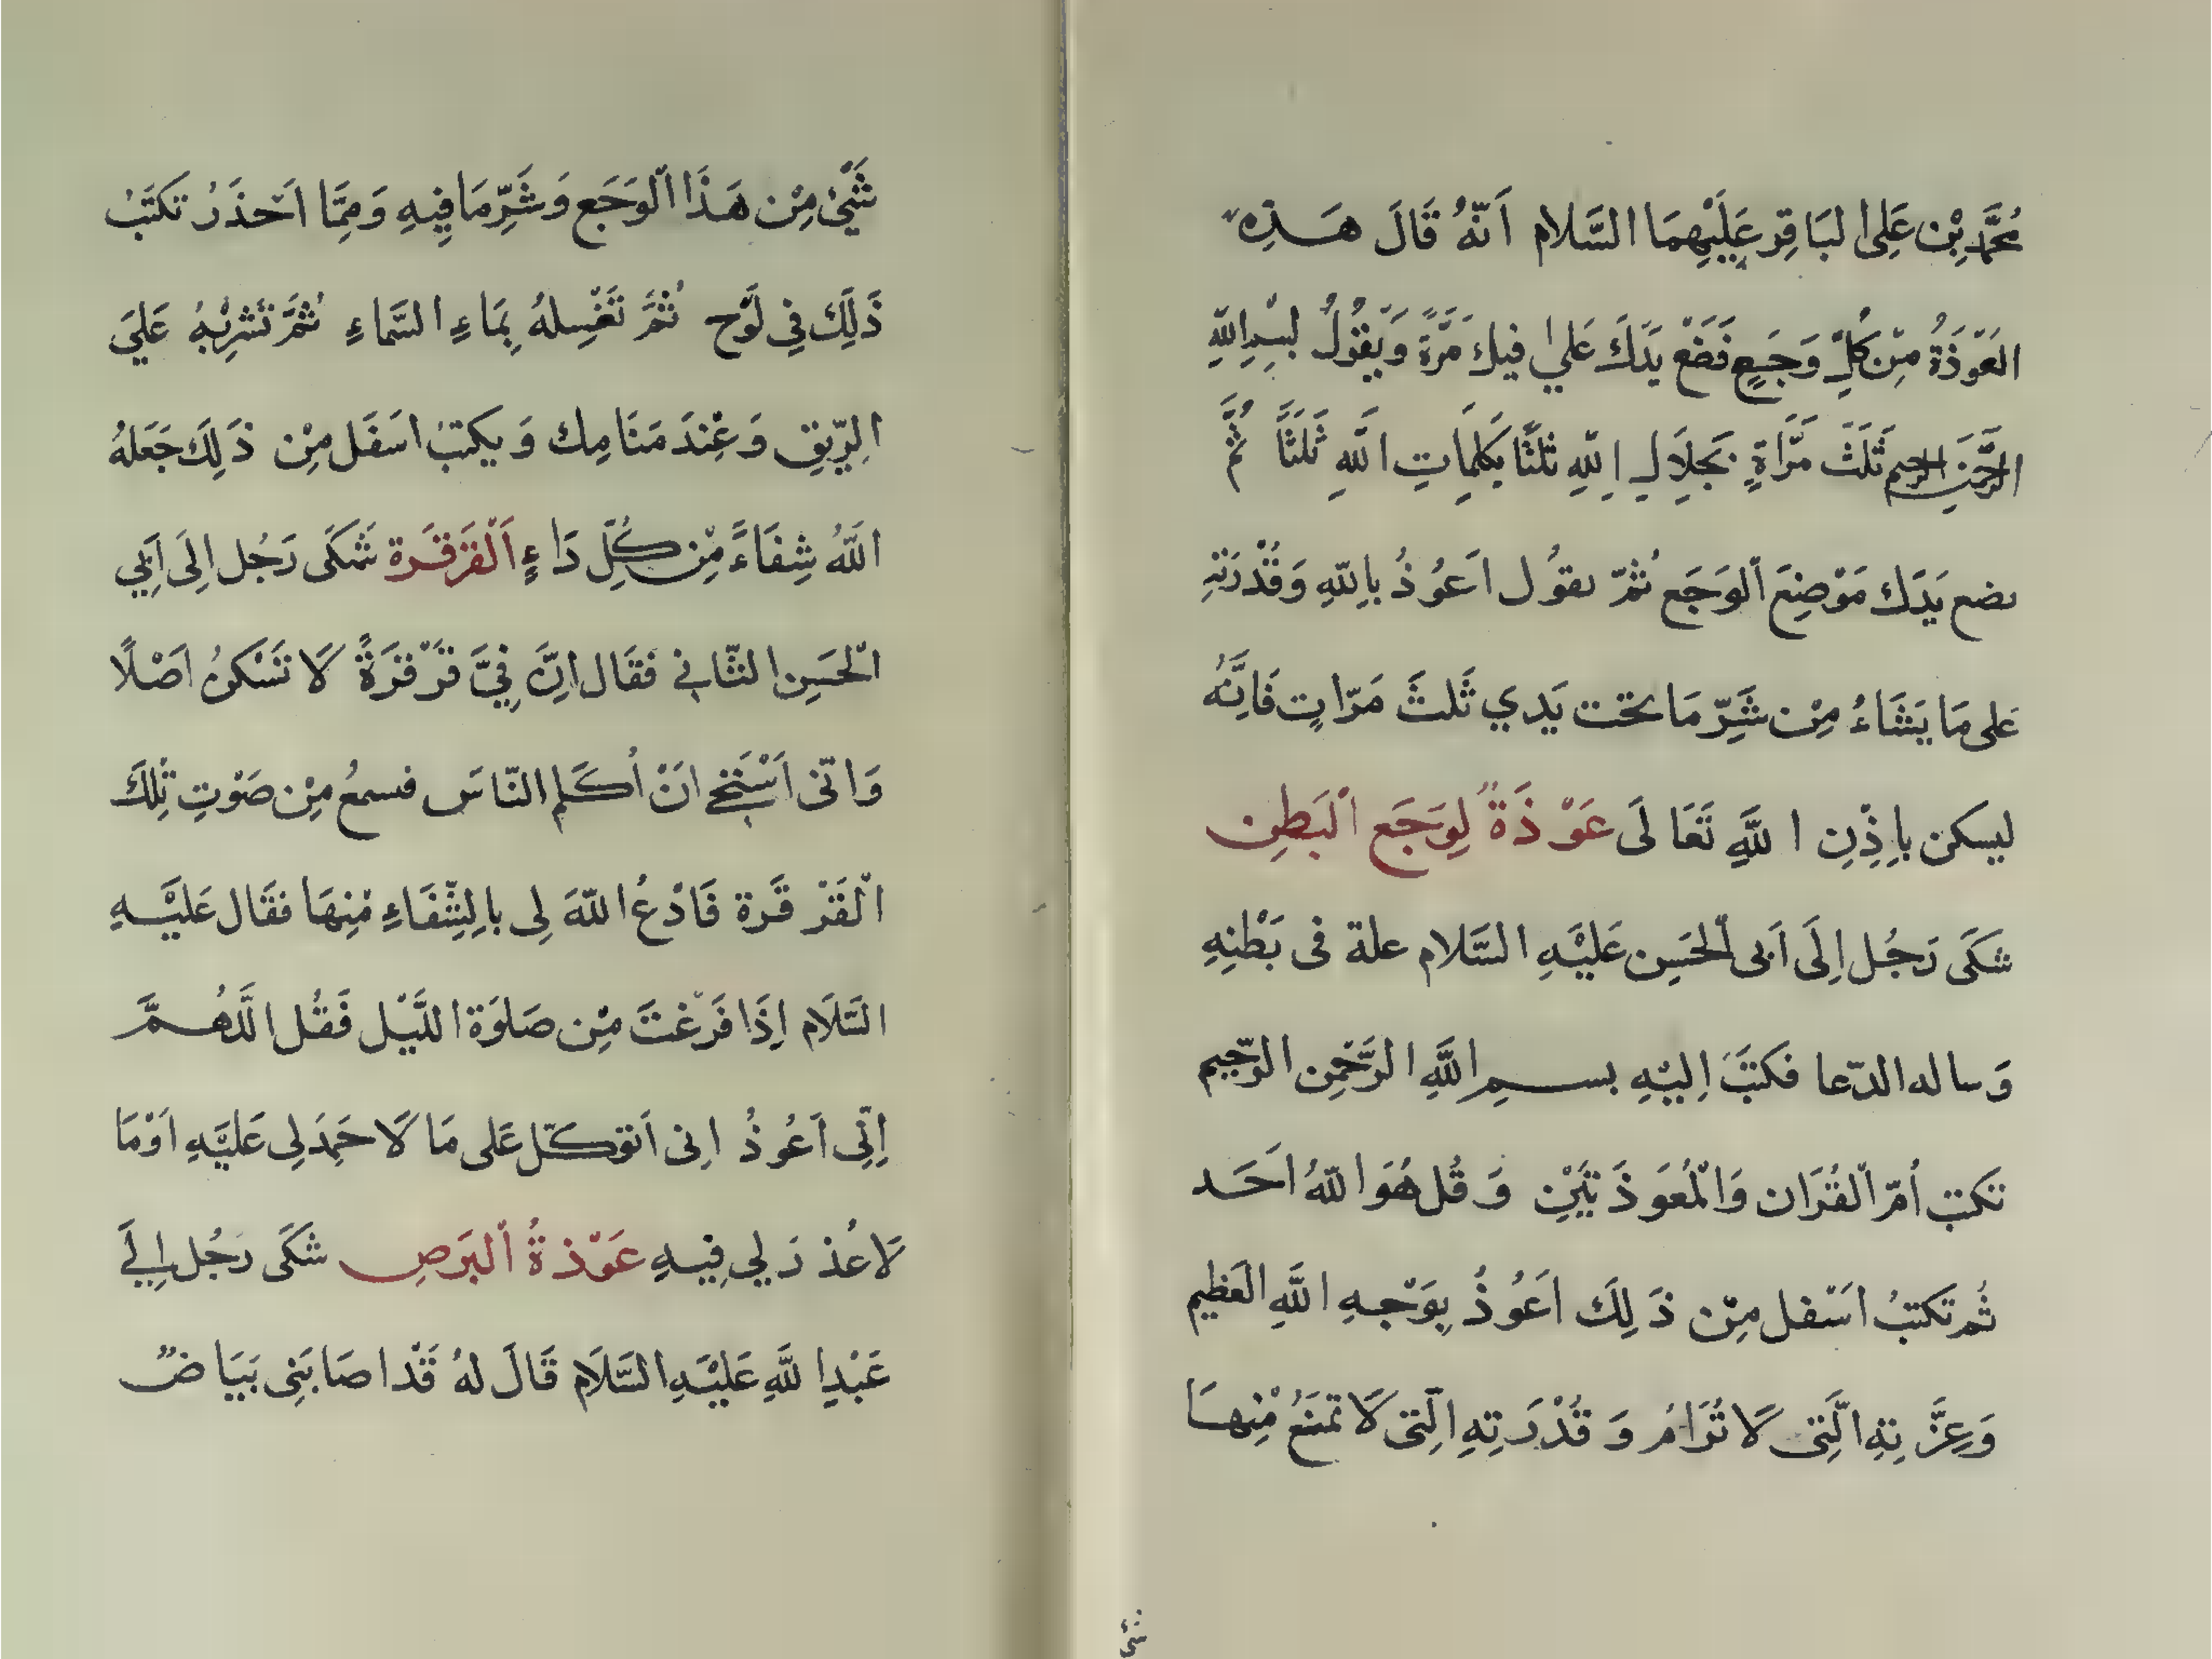 مُحَمَّدِبْن عَلِى البَاقِر عَلَيْهِمَا السَّلام اَنَّهُ قَالَ هَـذِهِ
العَوْذَةُ مِنْ كُلِّ وَجَـعٍ فَضَعْ يَدَكَ عَلىٰ فيك مَرَّةً وَيقُولُ بِسْمِ اللّهِ
الرَّحمٰنِ الرحيم ثَلَثَ مَرَّاةٍ بَجِلَالِ اللّهِ ثَلثًا بكَلِمَاتِ اللّهِ ثَلثًا ثُمَّ
يضع يَدَك مَوْضِعَ اْلوَجَع ثُمّ يقوُل اَعُوذُ باِللّهِ وَقُدْرَتِهِ
عَلى مَا يَشَاءُ مِنْ شَرِّ مَا تحت يَدي ثَلثَ مَرّاتٍ فَاِنَّهُ
ليسكن باِذْنِ اللَّهِ تَعَالَى عَوْذَةٌ لِوَجَع اْلبَطِن
شَكَى رَجُل اِلَى اَبى اْلحَسِن عَلَيْـهِ السَّلام علة فى بَطْنِهِ
وَساله الدّعا فَكتَبَ اِليْهِ بســـمِ اللَّهِ الرَّحْمٰنِ الرّحِيم
تكتب اُمّ اْلقُرَان وَاْلمُعَوَذَتَيْنِ وَ قُل هُوَ اللّهُ اَحَـد
ثُم تَكتبُ اسَفل مِنْ ذَلِكَ اَعوُذُ بِوَجْـهِ اللَّهِ العَظيِم
وَعِزَّتِهِ الَّتِى لَا تُرَامُ وَ قُدْرَتِهِ الَّتِى لَا تمنَعُ مْنِهـَا
شئ
شَيْئ مِنْ هَـذَا اْلوَجَع وَشَرِّمَا فِيِهِ وَمِمَّا اَحْذَرُ تكتَبُ
ذَلِكَ فِي لَوْح ثُمَّ تَغْسِلهُ بِمَاءِ السَّمَاءِ ثُمَّ تَشرِبْهُ عَلىَ
الِرّيقِ وَعْنِدَ مَنَامِك وَيكتبُ اسَفَل مِنْ ذَلِكَ جَعَلهُ
اللَّهُ شِفَاءً مِنْ كُلِّ دَاءٍ اَلْقَرْقَـرة شَكَى رَجُل اِلَى اَبِي
اْلحَسِن الثّانى فَقَال اِنَّ فِيَّ قرْقَرَةً لَا تَسْكنُ اصَلًا
وَاِنّى اَسْتَحِى انَْ اُكَلم النّاسَ فسمعُ مِنْ صَوْتِ تِلكَ
اْلقَرْقَرة فَادْعُ اللّهَ لِى باِلشِّفَاءِ مْنِهَا فقَال عَليَْـهِ
السَّلَام اِذَا فَرَغْتَ مِنْ صَلوَة اللَّيْل فَقُل اللَّهُـمَّ
اِنّى اَعُوذُ اِنى اَتوكَـّل عَلى مَا لَا حَمَدَ لِى عَليَْهِ اَوْمَا
لَا عُذرَ لِي فِيـهِ عَوْذةُ اْلبَرَصِ شَكَى رَجُل اِلَى
عَبْدِاللَّهِ عَليَْـهِ السَّلَام قَالَ لهُ قَدْ اصَابَنِى بَيَاضٌ